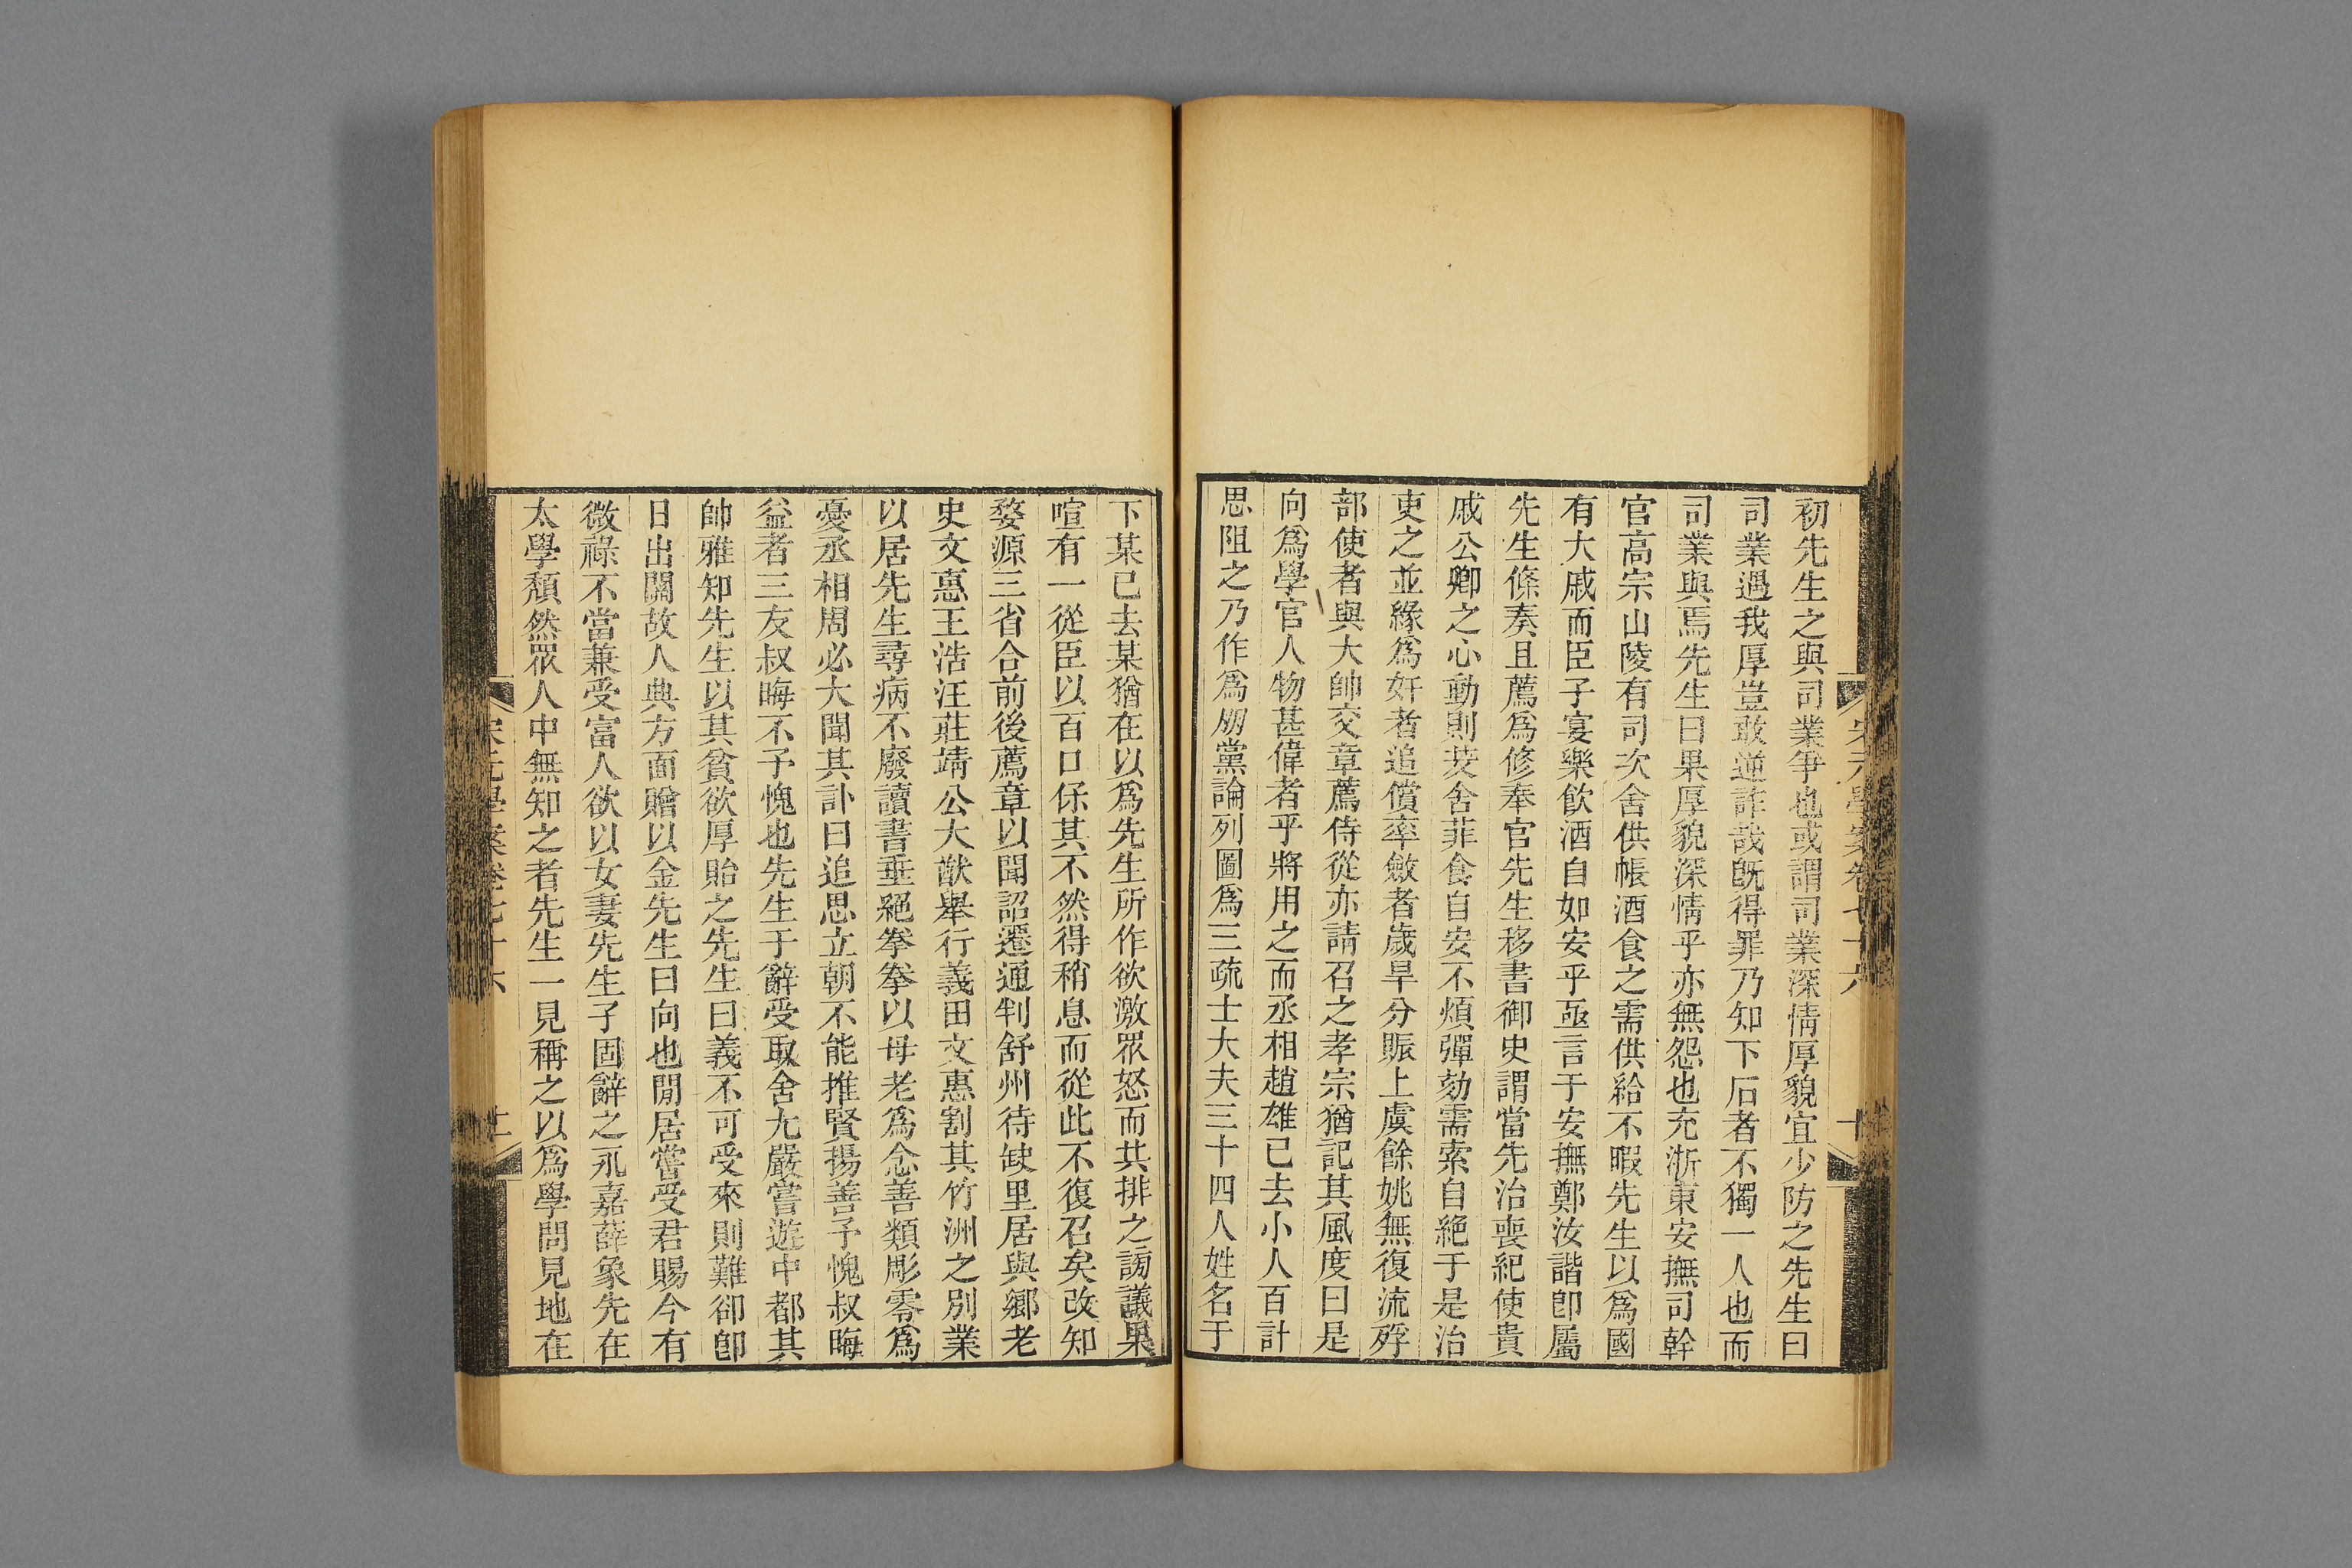 初先生之與司業爭也或謂司業深情厚貌宜少防之先生曰
司業遇我厚豈敢逆詐哉旣得罪乃知下石者不獨一人也而
司業與焉先生曰果厚貌深情乎亦無怨也充浙東安撫司幹
官高宗山陵有司次舍供帳酒食之需供給不暇先生以爲國
有大戚而臣子宴樂飮酒自如安乎亟言于安撫鄭汝諧卽屬
先生條奏且薦爲修奉官先生移書御史謂當先治喪紀使貴
戚公卿之心動則茇舍菲食自安不煩彈劾需索自絕于是治
吏之並緣爲奸者追償率斂者歲旱分賑上虞餘姚無復流殍
部使者與大帥交章薦侍從亦請召之孝宗猶記其風度曰是
向爲學官人物甚偉者乎將用之而丞相趙雄已去小人百計
思阻之乃作爲朋黨論列圖爲三疏士大夫三十四人姓名于
宋元學案卷七十六
十
下某已去某猶在以爲先生所作欲激眾怒而共排之謗議果
喧有一從臣以百口保其不然得稍息而從此不復召矣改知
婺源三省合前後薦章以聞詔遷通判舒州待缺里居與鄉老
史文惠王浩汪莊靖公大猷舉行義田文惠割其竹洲之別業
以居先生尋病不廢讀書垂絕拳拳以母老爲念善類彫零爲
憂丞相周必大聞其訃曰追思立朝不能推賢揚善予愧叔晦
益者三友叔晦不予愧也先生于辭受取舍尤嚴嘗遊中都其
帥雅知先生以其貧欲厚貽之先生曰義不可受來則難卻卽
日出關故人典方面贈以金先生曰向也閒居嘗受君賜今有
微祿不當兼受富人欲以女妻先生子固辭之永嘉薛象先在
太學頹然眾人中無知之者先生一見稱之以爲學問見地在
宋元學案卷七十六